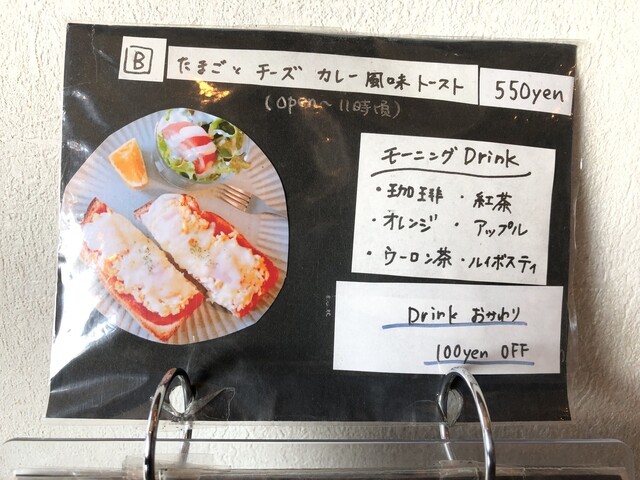 B たまごと チーズ カレー風味トースト 550yen
(open〜11時頃)
モーニングDrink
・珈琲 ・紅茶
・オレンジ ・アップル
・ウーロン茶 ・ルイボスティ
Drink おかわり
100yen OFF